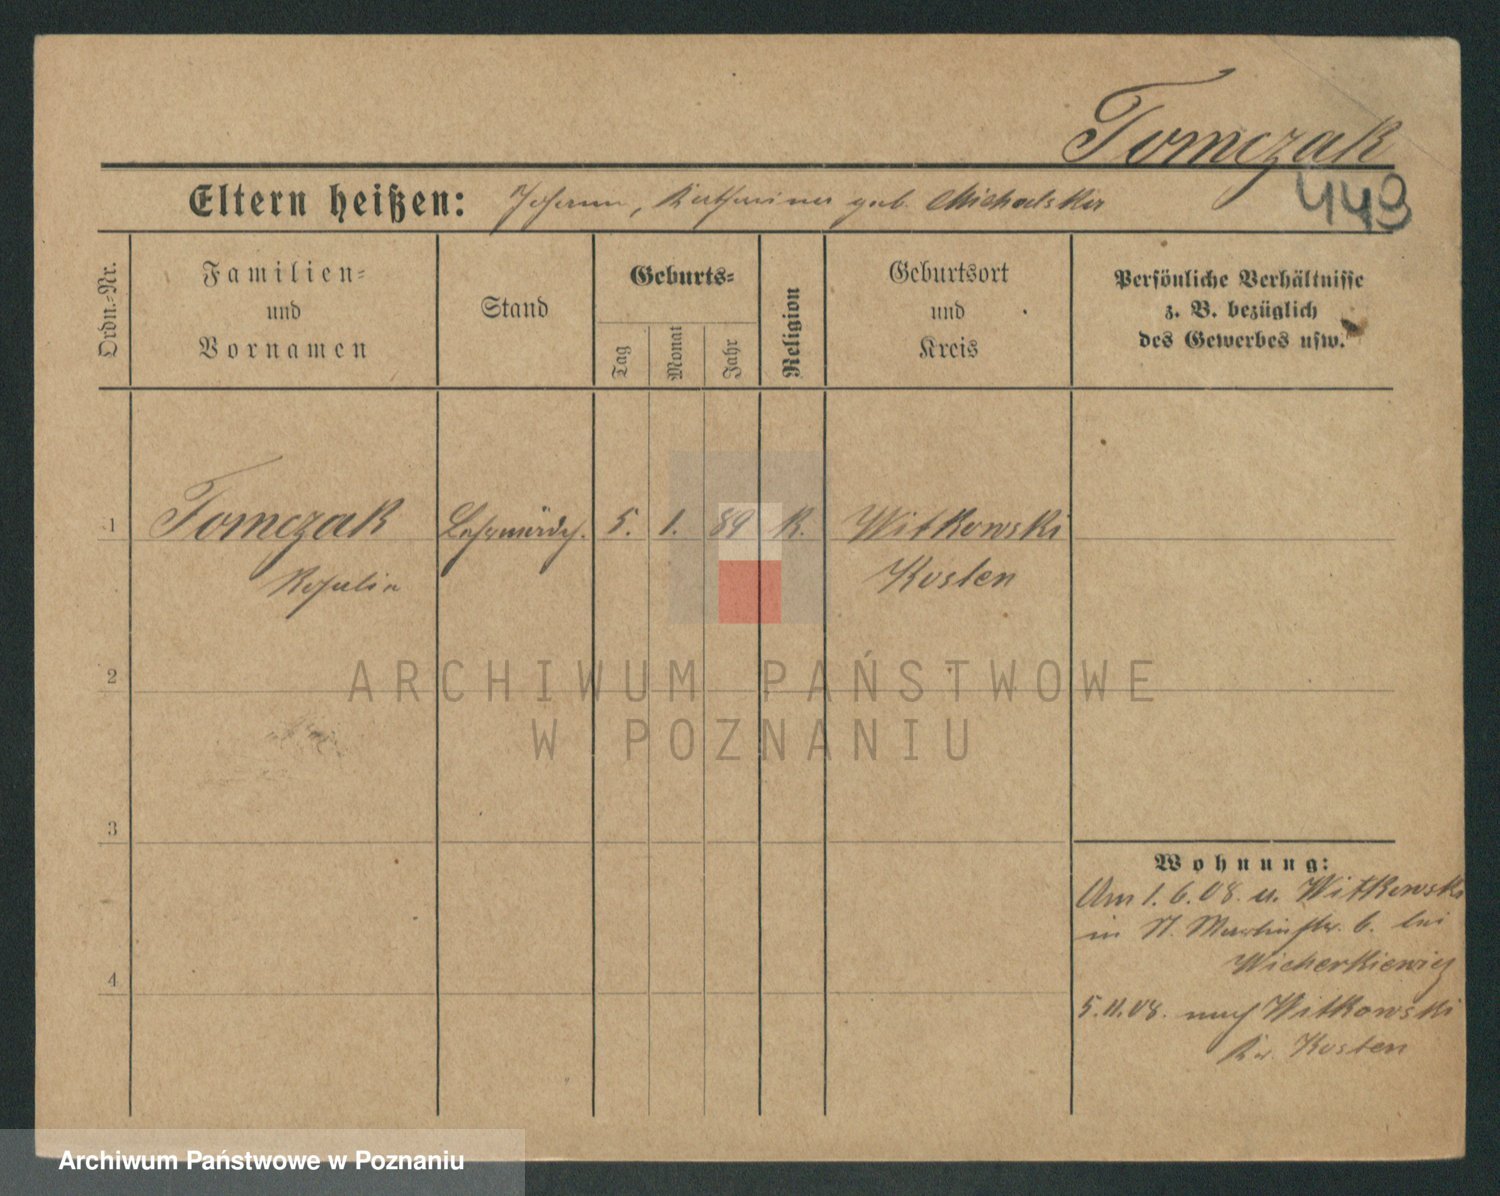 Tomczak
449
Eltern heißen: Johann, Katharina geb. Michalska
Ordn.-Nr.
Familien-
und
Vornamen
Stand
Geburts-
Tag
Monat
Jahr
Religion
Geburtsort
und
Kreis
Persönliche Verhältnisse
z. B. bezüglich
des Gewerbes usw.
1 Tomczak Lehrmädch. 5. 1. 89 K. Witkowski
Kosten
2
3
4
Wohnung:
Am 1. 6. 08. v. Witkowski
in St. Martinstr. 6. bei
Wicherkiewicz
5.11.08. nach Witkowski
Kr. Kosten
ARCHIWUM PAŃSTWOWE
W POZNANIU
Archiwum Państwowe w Poznaniu